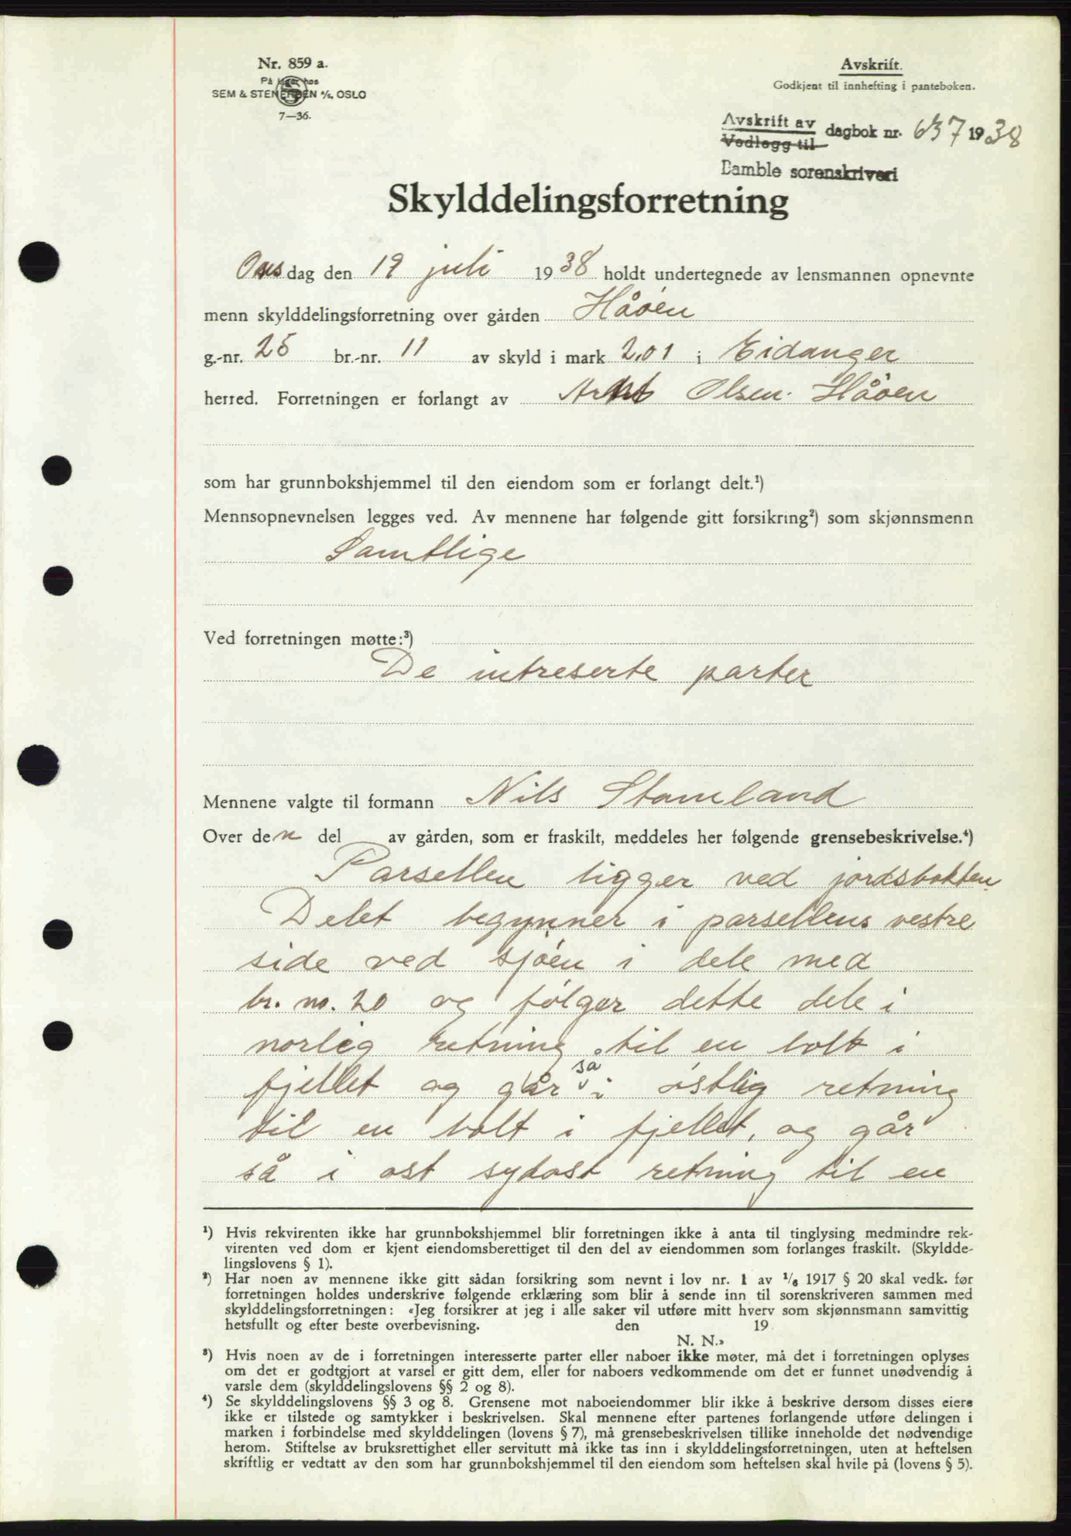 Nr. 859 a.
På lager hos
SEM & STENERSEN A/S, OSLO
7—36.
Avskrift.
Godkjent til innhefting i panteboken.
Avskrift av
Vedlegg til
dagbok nr. 637 1938
Bamble sorenskriveri
Skylddelingsforretning
Onsdag den 19 juli 1938 holdt undertegnede av lensmannen opnevnte
menn skylddelingsforretning over gården Håøen
g.-nr. 25 br.-nr. 11 av skyld i mark 2,01 i Eidanger
herred. Forretningen er forlangt av Arnt Olsen Håøen
som har grunnbokshjemmel til den eiendom som er forlangt delt.¹)
Mennsopnevnelsen legges ved. Av mennene har følgende gitt forsikring²) som skjønnsmenn
Samtlige
Ved forretningen møtte:³)
De intreserte parter
Mennene valgte til formann Nils Stamland
Over den del av gården, som er fraskilt, meddeles her følgende grensebeskrivelse.⁴)
Parsellen ligger ved jordsbakten
Delet begynner i parsellens vestre
side ved sjøen i dele med
br. no. 20 og følger dette dele i
norlig retning til en bolt i
fjellet og går så i østlig retning
til en bolt i fjellet, og går
så i ost sydost retning til en
¹) Hvis rekvirenten ikke har grunnbokshjemmel blir forretningen ikke å anta til tinglysing medmindre rek-
virenten ved dom er kjent eiendomsberettiget til den del av eiendommen som forlanges fraskilt. (Skyldde-
lingslovens § 1).
²) Har noen av mennene ikke gitt sådan forsikring som nevnt i lov nr. 1 av ¹/₆ 1917 § 20 skal vedk. før
forretningen holdes underskrive følgende erklæring som blir å sende inn til sorenskriveren sammen med
skylddelingsforretningen: «Jeg forsikrer at jeg i alle saker vil utføre mitt hverv som skjønnsmann samvittig
hetsfullt og efter beste overbevisning. den 19
N. N.»
³) Hvis noen av de i forretningen interesserte parter eller naboer ikke møter, må det i forretningen oplyses
om det er godtgjort at varsel er gitt dem, eller for naboers vedkommende om det er funnet unødvendig å
varsle dem (skylddelingslovens §§ 2 og 8).
⁴) Se skylddelingslovens §§ 3 og 8. Grensene mot naboeiendommer blir ikke å beskrive dersom disses eiere
ikke er tilstede og samtykker i beskrivelsen. Skal mennene efter partenes forlangende utføre delingen i
marken i forbindelse med skylddelingen (lovens § 7), må grensebeskrivelsen tillike inneholde det nødvendige
herom. Stiftelse av bruksrettighet eller servitutt må ikke tas inn i skylddelingsforretningen, uten at heftelsen
skriftlig er vedtatt av den som har grunnbokshjemmel til den eiendom som heftelsen skal hvile på (lovens § 5).